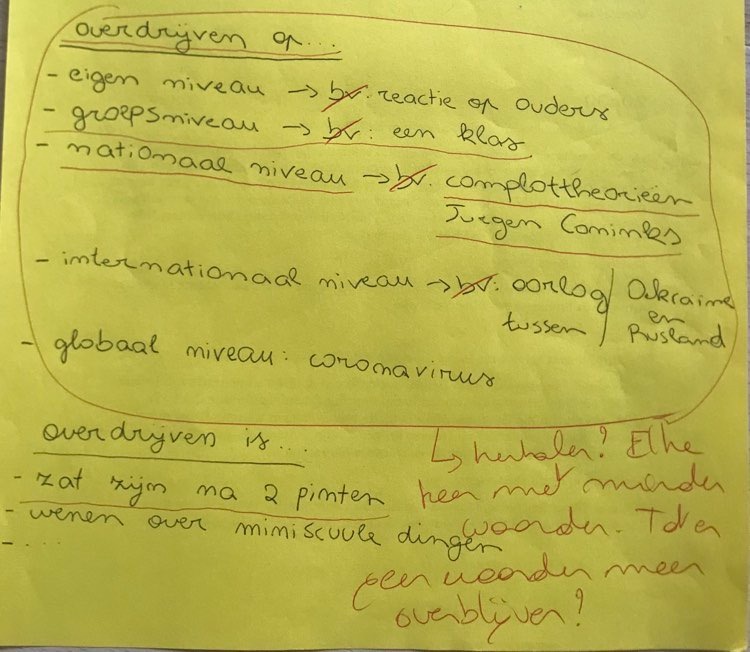 overdrijven op...
- eigen niveau → bv. reactie op ouders
- groepsniveau → bv: een klas
- nationaal niveau → bv. complottheorieën
Jurgen Conimks
- internationaal niveau → bv: oorlog / Oekraine
tussen / en
Rusland
- globaal niveau: coronavirus
overdrijven is...
- zat zijn na 2 pinten
- wenen over miniscuule dingen
- ....
↳ herhalen? Elke
keer met minder
woorden. Tot er
geen woorden meer
overblijven?